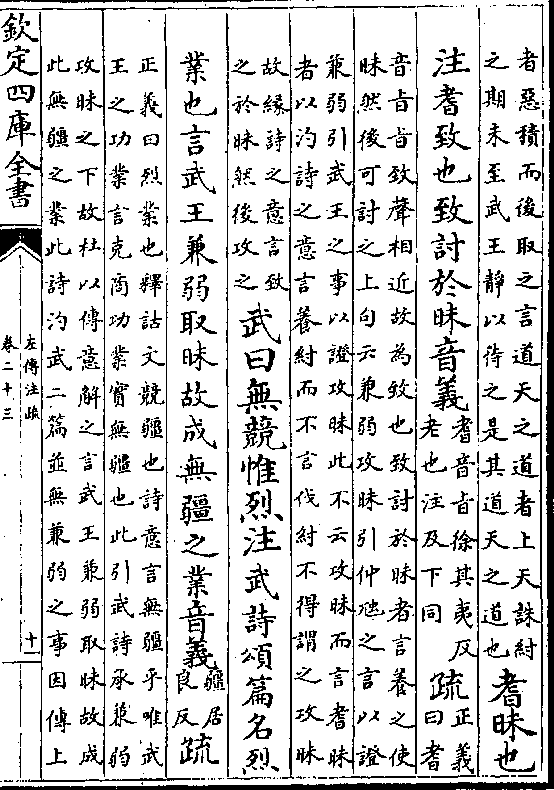 者惡積而後取之言道天之道者上天誅紂
之期未至武王靜以待之是其道天之道也
耆昧也
注耆致也致討於昧音義
耆音㫖徐其夷反
老也注及下同
疏
正義
曰耆
音㫖㫖致聲相近故為致也致討於昧者言養之使
昧然後可討之上句云兼弱攻昧引仲虺之言以證
兼弱引武王之事以證攻昧此不云攻昧而言耆昧
者以汋詩之意言養紂而不言伐紂不得謂之攻昧
故縁詩之意言致
之於昧然後攻之
武曰無競惟烈注武詩頌篇名烈
業也言武王兼弱取昧故成無疆之業音義
疆居
良反
疏
正義曰烈業也釋詁文競疆也詩意言無疆乎唯武
王之功業言克商功業實無疆也此引武詩承兼弱
攻昧之下故杜以傳意解之言武王兼弱取昧故成
此無疆之業此詩汋武二篇並無兼弱之事因傳上
欽定四庫全書
左傳注疏
卷二十三
十